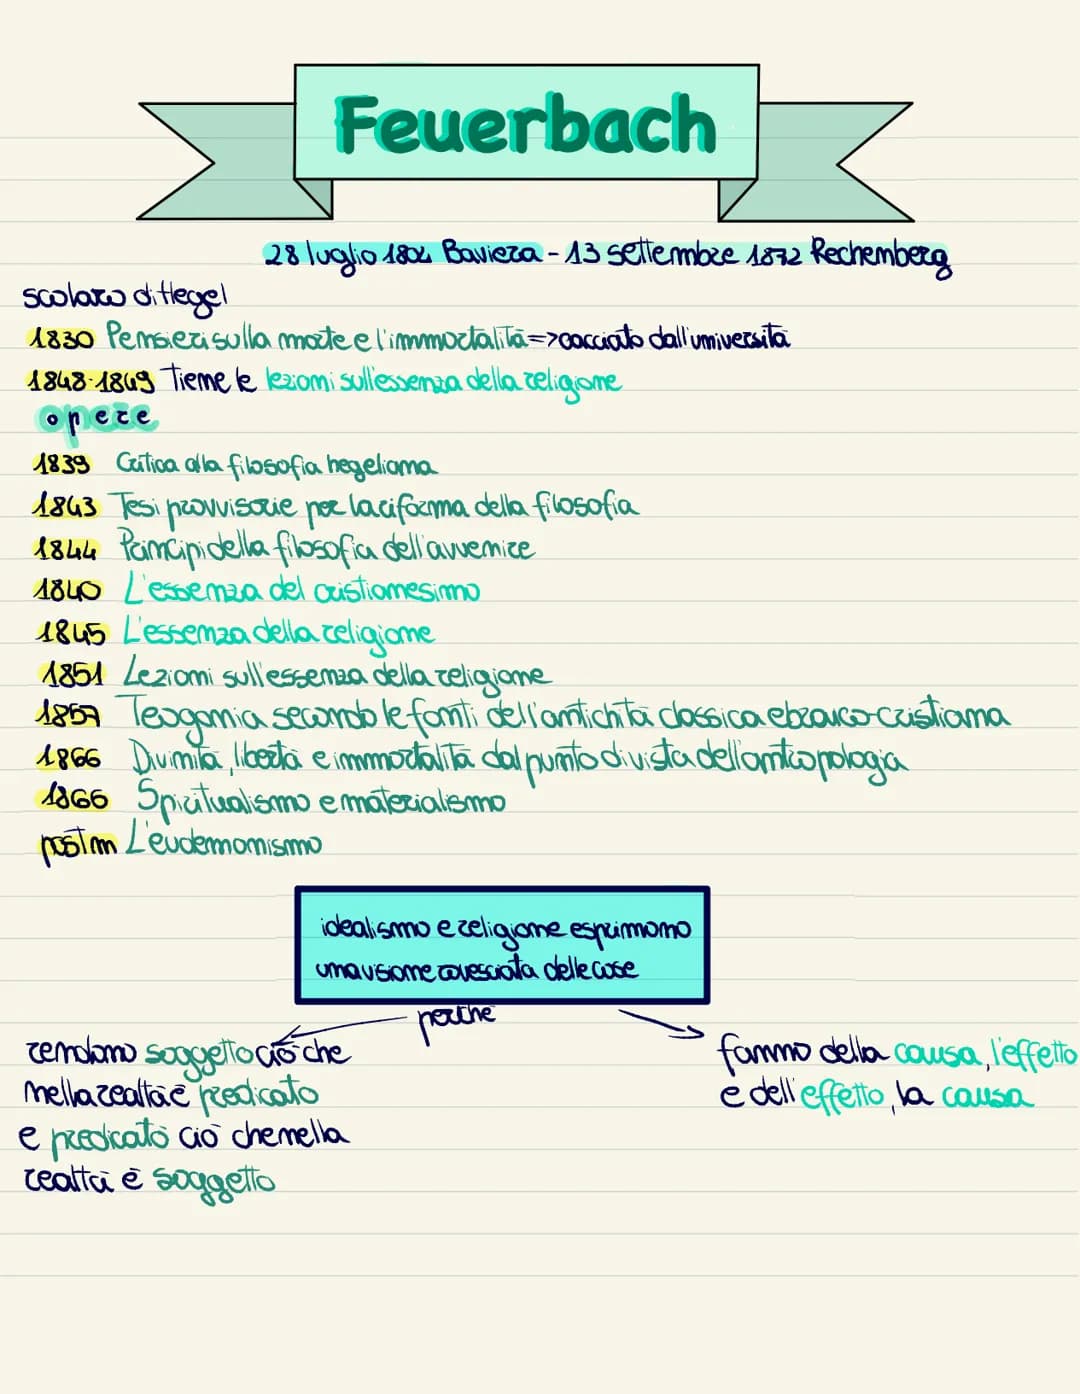 Feuerbach
28 luglio 1804 Baviera - 13 settembre 1872 Rechemberg
scolaro di Hegel
1830 Pensieri sulla morte e l'immortalità => cacciato dall'università
1848-1849 Tiene le lezioni sull'essenza della religione
opere
1839 Critica alla filosofia hegeliana
1843 Tesi provvisorie per la riforma della filosofia
1844 Principi della filosofia dell'avvenire
1840 L'essenza del cristianesimo
1845 L'essenza della religione
1851 Lezioni sull'essenza della religione
1857 Teogonia secondo le fonti dell'antichità classica ebraico-cristiana
1866 Divinità, libertà e immortalità dal punto di vista dell'antropologia
1866 Spiritualismo e materialismo
postm L'eudemonismo
idealismo e religione esprimono
una visione rovesciata delle cose
perchè
rendono soggetto ciò che
nella realtà è predicato
e predicato ciò che nella
realtà è soggetto
fanno della causa, l'effetto
e dell'effetto, la causa